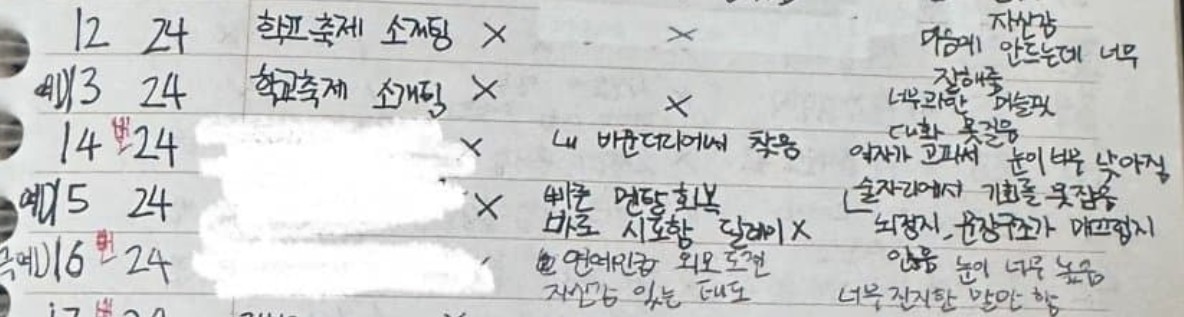 자신감
12 24 학교축제 소개팅 × × 마음에 안드는데 너무
잘해줌
예)13 24 학교축제 소개팅 × × 너무과한 머슬핏
대화 못걸음
14 번 24 × 내 바운더리에서 착용 여자가 고파서 눈이 너무 낮아짐
예)15 24 × 빠른 멘탈회복 술자리에서 기회를 못잡음
바로 시도함 딜레이× 뇌정지, 문장구조가 매끄럽지
극예)16 번 24 연예인급 외모도전 않음 눈이 너무 높음
자신감 있는 태도 너무진지한 말만 함